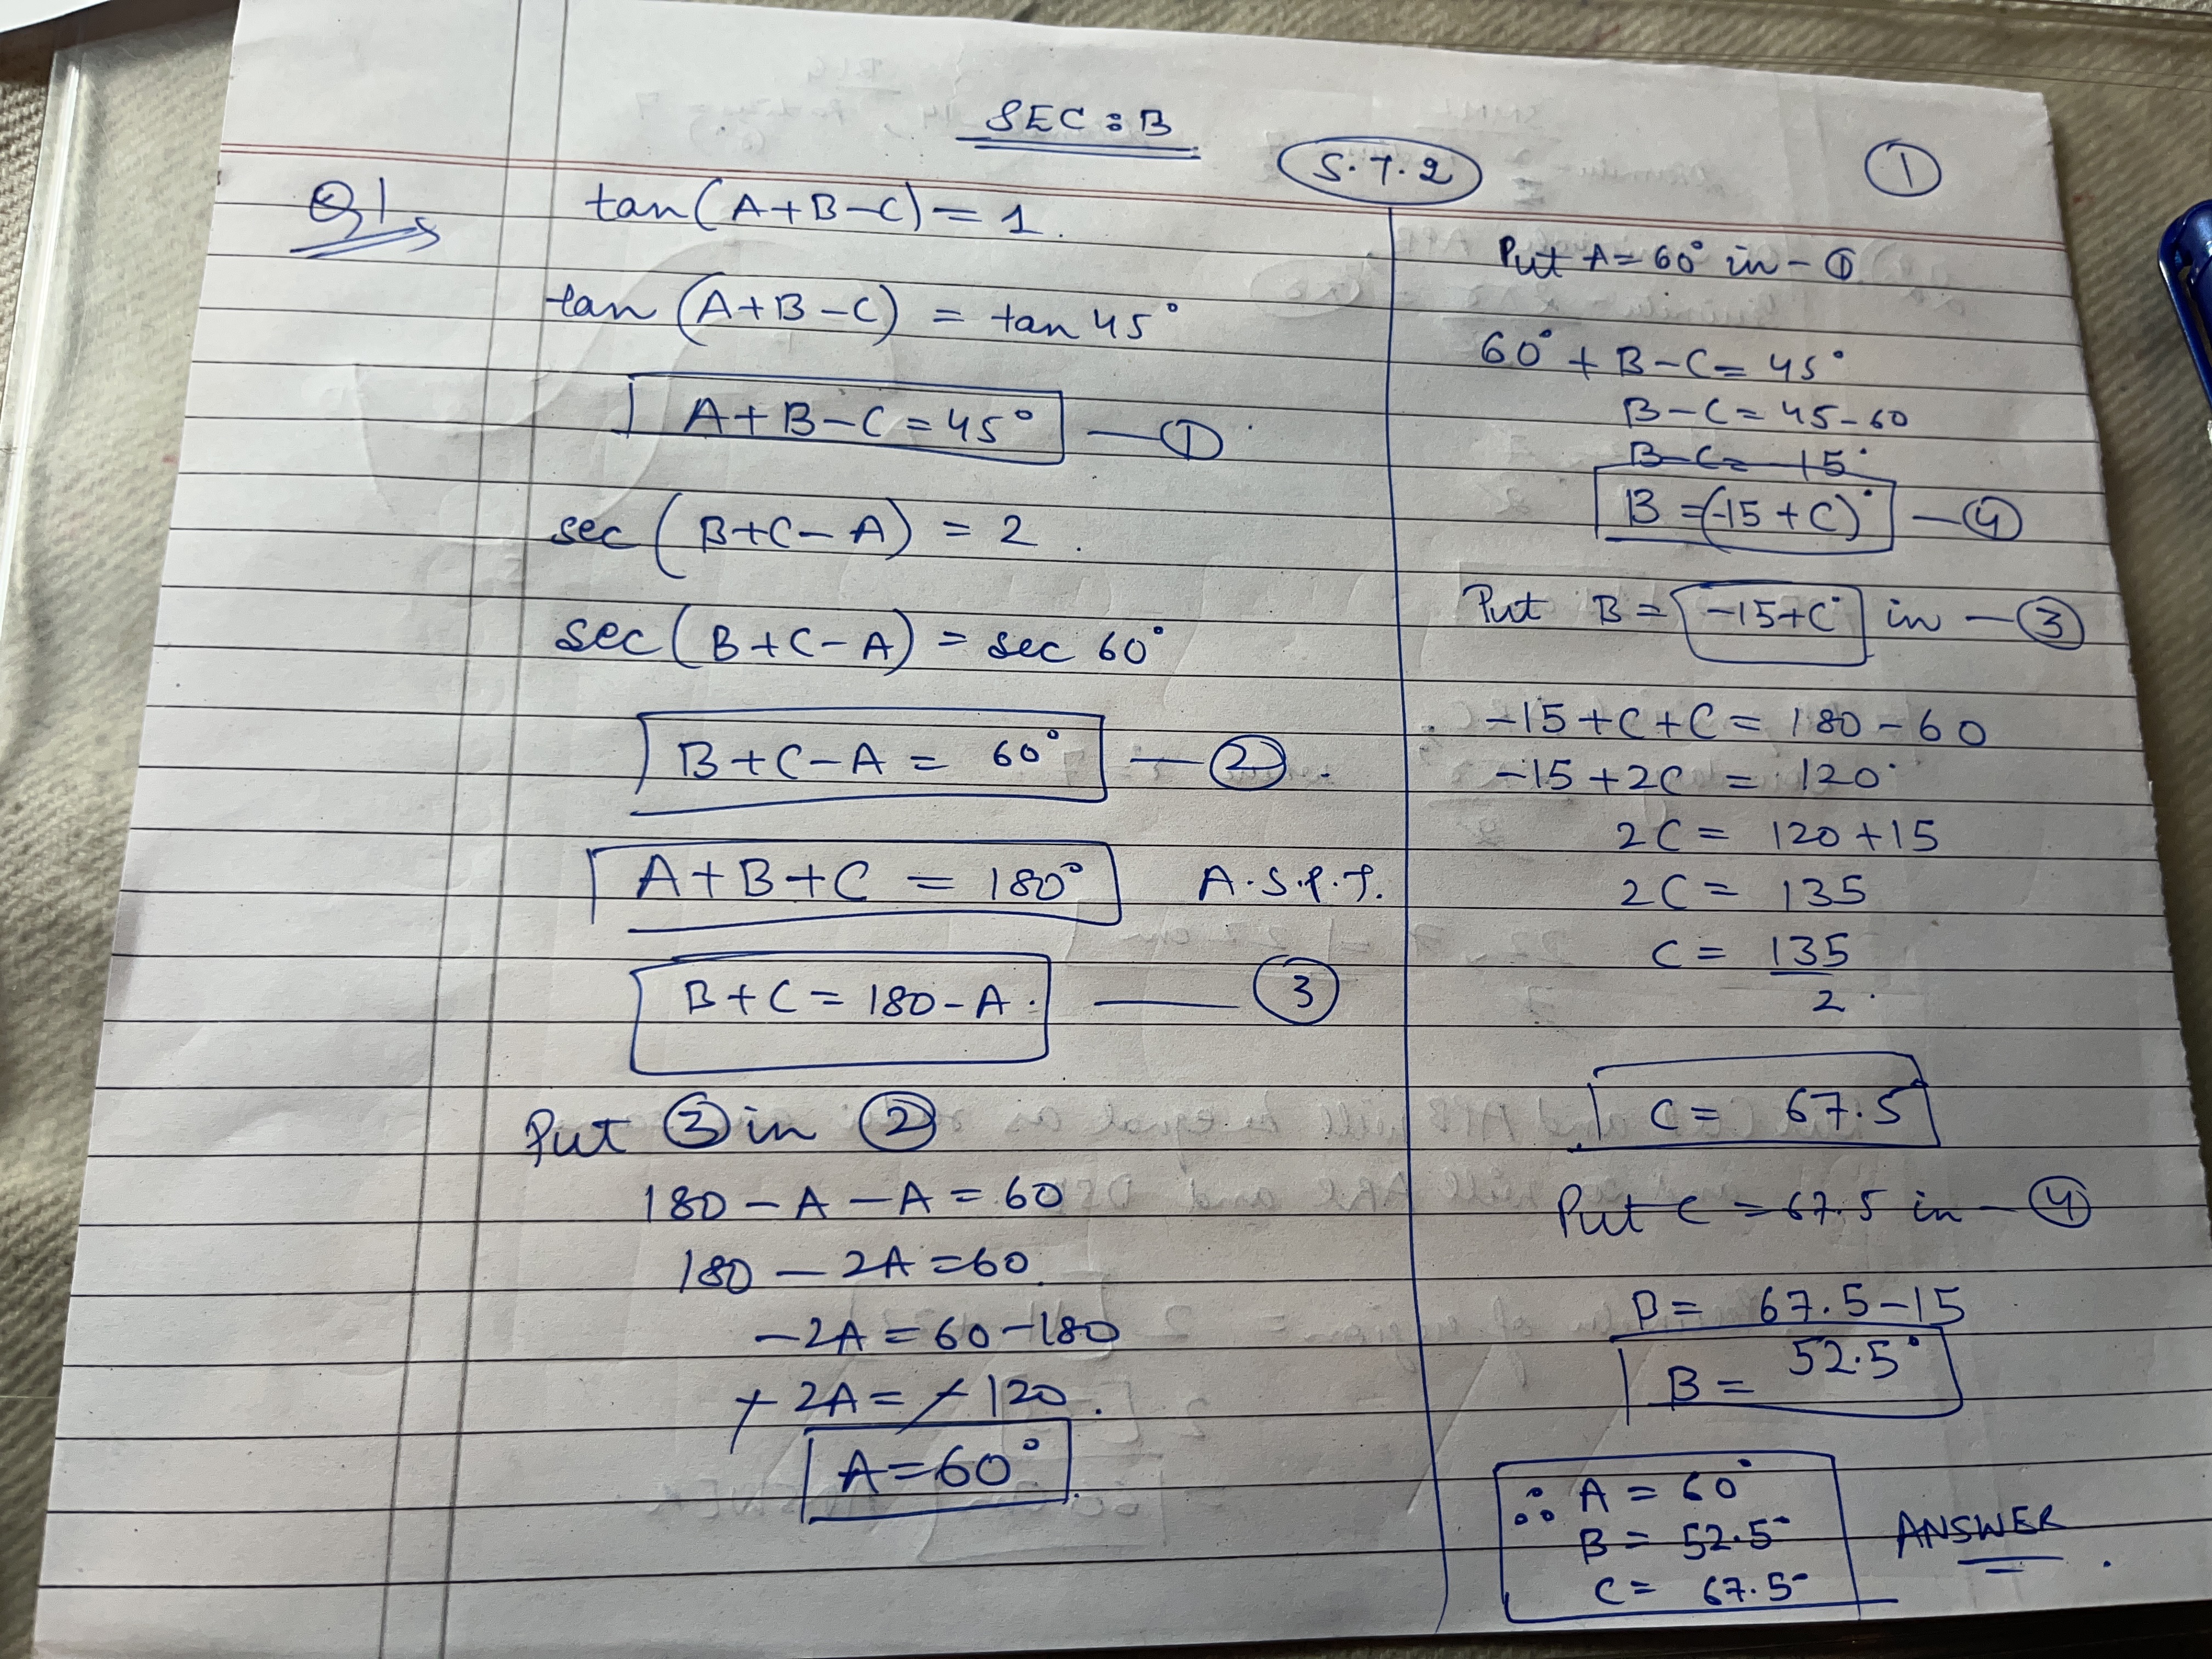 SEC : B
S.T.2
1
Q1
tan(A+B-C) = 1.
tan(A+B-C) = tan 45°
A+B-C = 45° — ①
sec(B+C-A) = 2.
sec(B+C-A) = sec 60°
B+C-A = 60° — ②.
A+B+C = 180° A.S.P.T.
B+C = 180-A. — ③
Put ③ in ②
180 - A - A = 60
180 - 2A = 60.
-2A = 60-180
-2A = -120.
A = 60°.
Put A = 60° in - ①
60° + B - C = 45°
B - C = 45 - 60
B - C = -15°
B = (-15 + C)° — ④
Put B = -15+C° in — ③
-15 + C + C = 180 - 60
-15 + 2C = 120°
2C = 120 + 15
2C = 135
C = 135
2.
C = 67.5
Put C = 67.5 in — ④
B = 67.5-15
B = 52.5°
∴ A = 60°
B = 52.5° ANSWER.
C = 67.5°